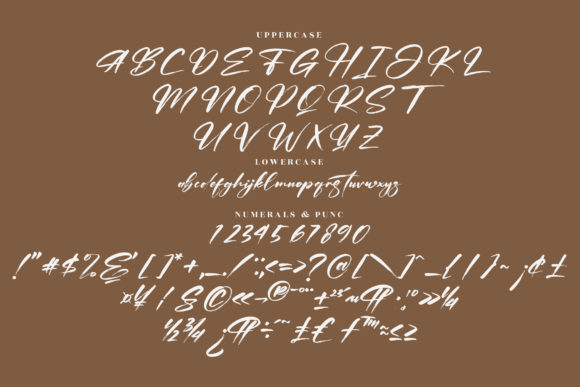 UPPERCASE
ABCDEFGHIJKL
MNOPQRST
UVWXYZ
LOWERCASE
abcdefghijklmnopqrstuvwxyz
NUMERALS & PUNC
1234567890
!"#$%&'[]*+,-./:;<=>?@[\]^_{|}~¡¢£
¤¥¦§©«¬®¯°±²¯¶·¸¹º»¼
½¾¿¶÷´¯˜±£ƒ™≈≤≥